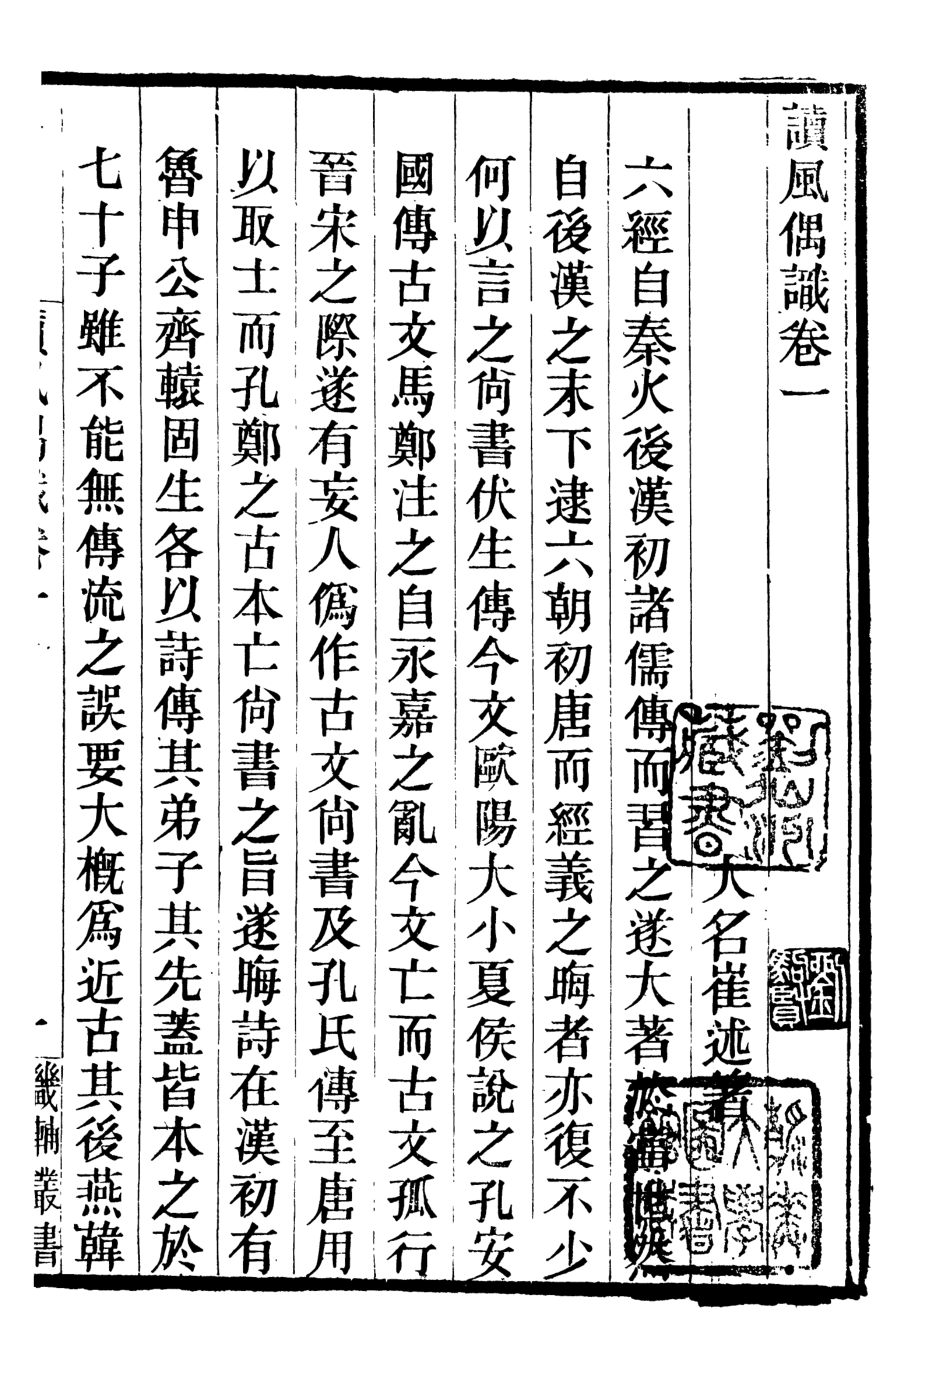 讀風偶識卷一
大名崔述著
六經自秦火後漢初諸儒傳而習之遂大著於當世然
自後漢之末下逮六朝初唐而經義之晦者亦復不少
何以言之尙書伏生傳今文歐陽大小夏侯說之孔安
國傳古文馬鄭注之自永嘉之亂今文亡而古文孤行
晉宋之際遂有妄人僞作古文尙書及孔氏傳至唐用
以取士而孔鄭之古本亡尙書之旨遂晦詩在漢初有
魯申公齊轅固生各以詩傳其弟子其先蓋皆本之於
七十子雖不能無傳流之誤要大概爲近古其後燕韓
讀風偶識卷一
一
畿輔叢書
藏書